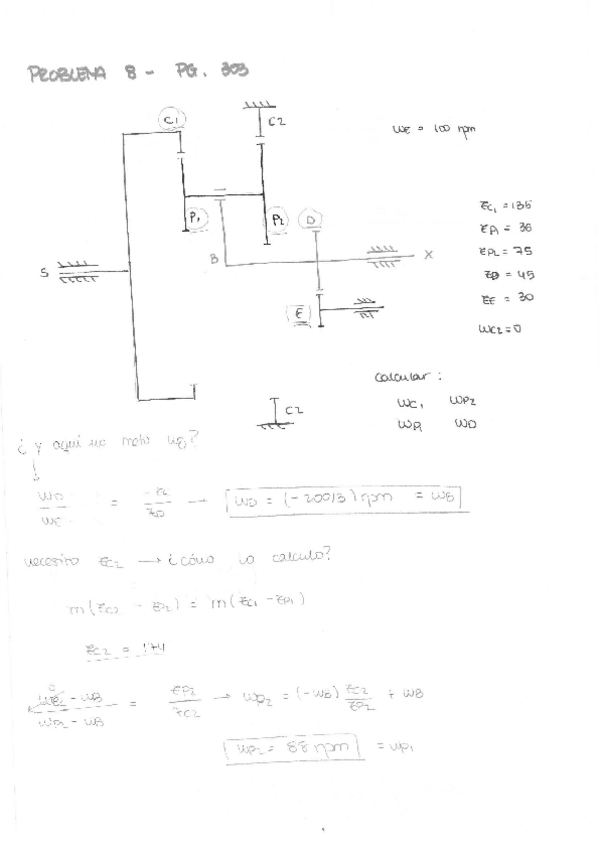 PROBLEMA 8 - PG. 303
C1
C2
WE = 100 rpm
P1
P2
D
S
B
X
E
ZC1 = 135
ZP1 = 36
ZP2 = 75
ZD = 45
ZE = 30
WC2 = 0
Calcular:
WC1 WP2
WP1 WD
C2
¿y aquí no meto WB?
WD/WE = -ZE/ZD → WD = (-200/3) rpm = WB
necesito ZC2 → ¿cómo lo calculo?
m(ZC2 - ZP2) = m(ZC1 - ZP1)
ZC2 = 174
0
WC2 - WB / WP2 - WB = ZP2/ZC2 → WP2 = (-WB) ZC2/ZP2 + WB
WP2 = 88 rpm = WP1